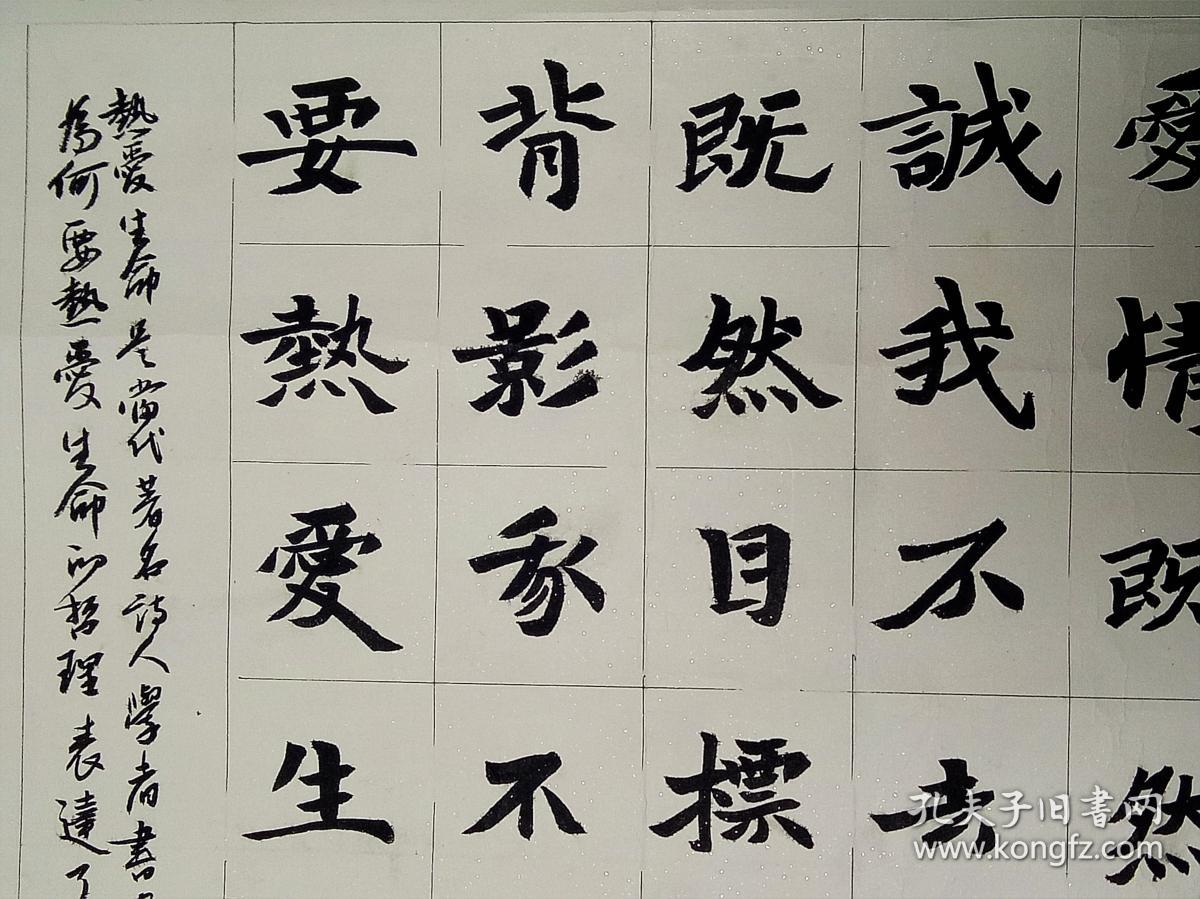 愛情既然
誠我不去
既然目標
背影我不
要熱愛生
熱愛生命是當代著名詩人學者書
為何要熱愛生命的哲理表達了
孔夫子旧書网
www.kongfz.com